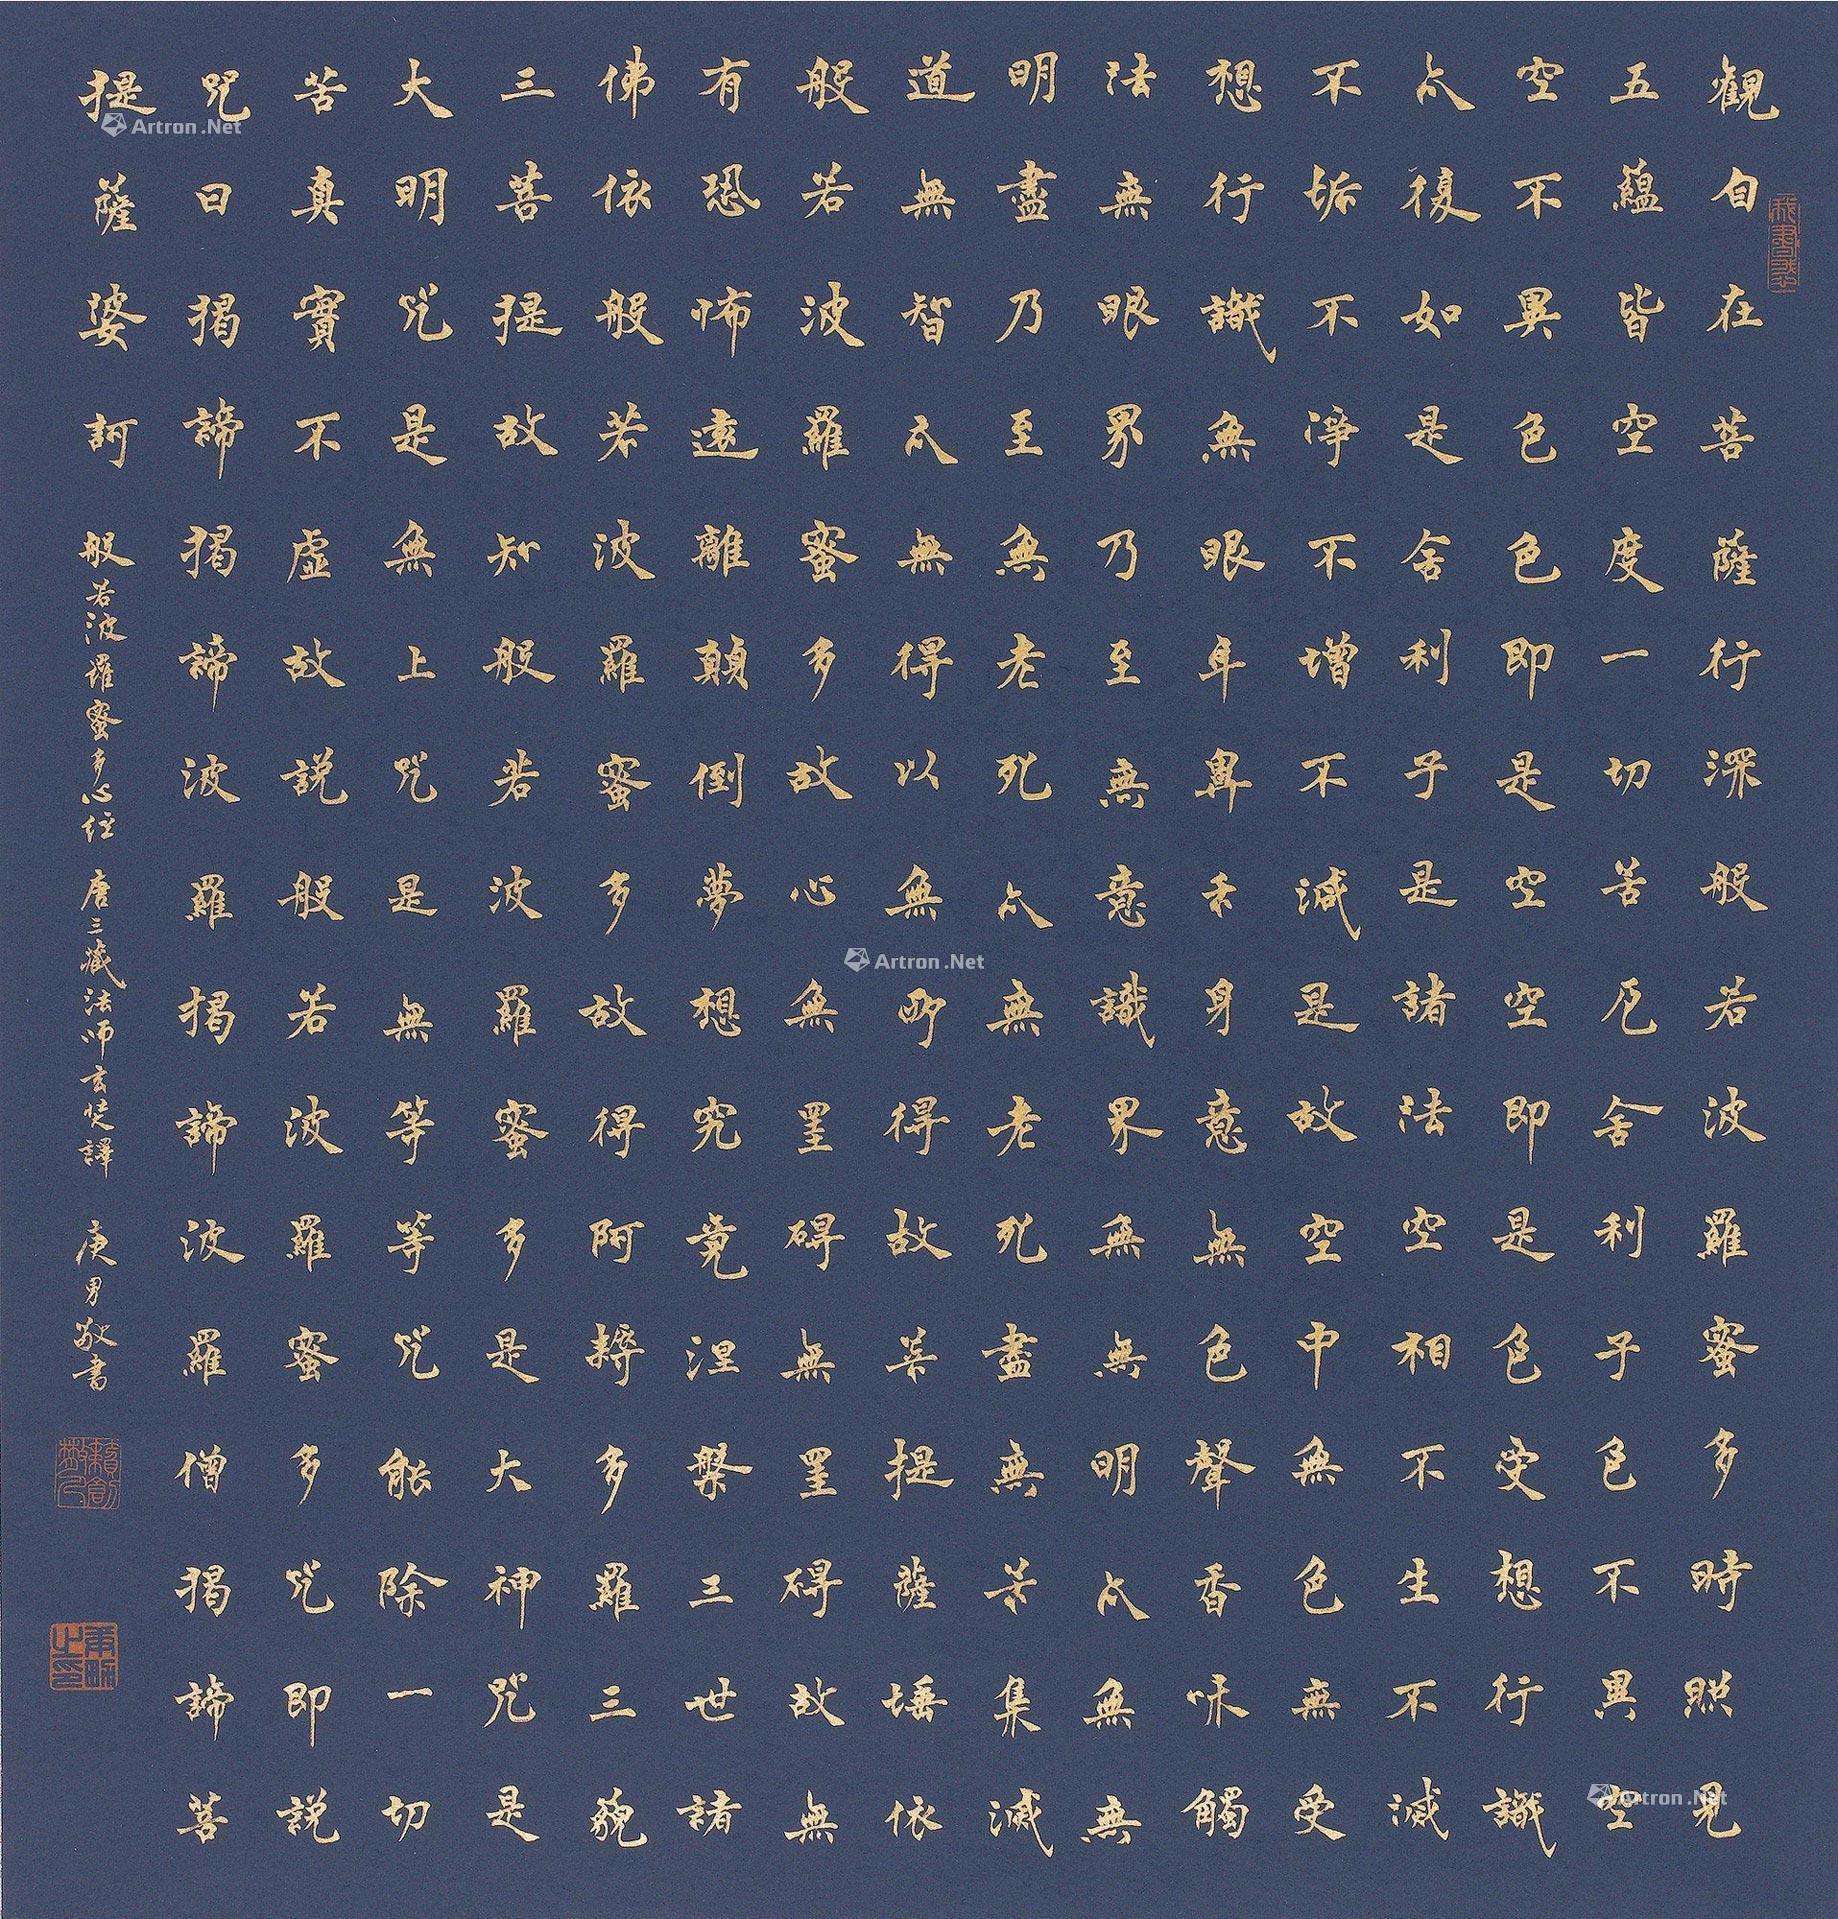 觀自在菩薩行深般若波羅蜜多時照見
五蘊皆空度一切苦厄舍利子色不異空
空不異色色即是空空即是色受想行識
亦復如是舍利子是諸法空相不生不滅
不垢不淨不增不減是故空中無色無受
想行識無眼耳鼻舌身意無色聲香味觸
法無眼界乃至無意識界無無明亦無無
明盡乃至無老死亦無老死盡無苦集滅
道無智亦無得以無所得故菩提薩埵依
般若波羅蜜多故心無罣碍無罣碍故無
有恐怖遠離顛倒夢想究竟涅槃三世諸
佛依般若波羅蜜多故得阿耨多羅三藐
三菩提故知般若波羅蜜多是大神咒是
大明咒是無上咒是無等等咒能除一切
苦真實不虛故說般若波羅蜜多咒即說
咒曰揭諦揭諦波羅揭諦波羅僧揭諦菩
提薩婆訶 般若波羅蜜多心經 唐三藏法師玄奘譯 男敬書
Artron.Net
Artron.Net
Artron.Net